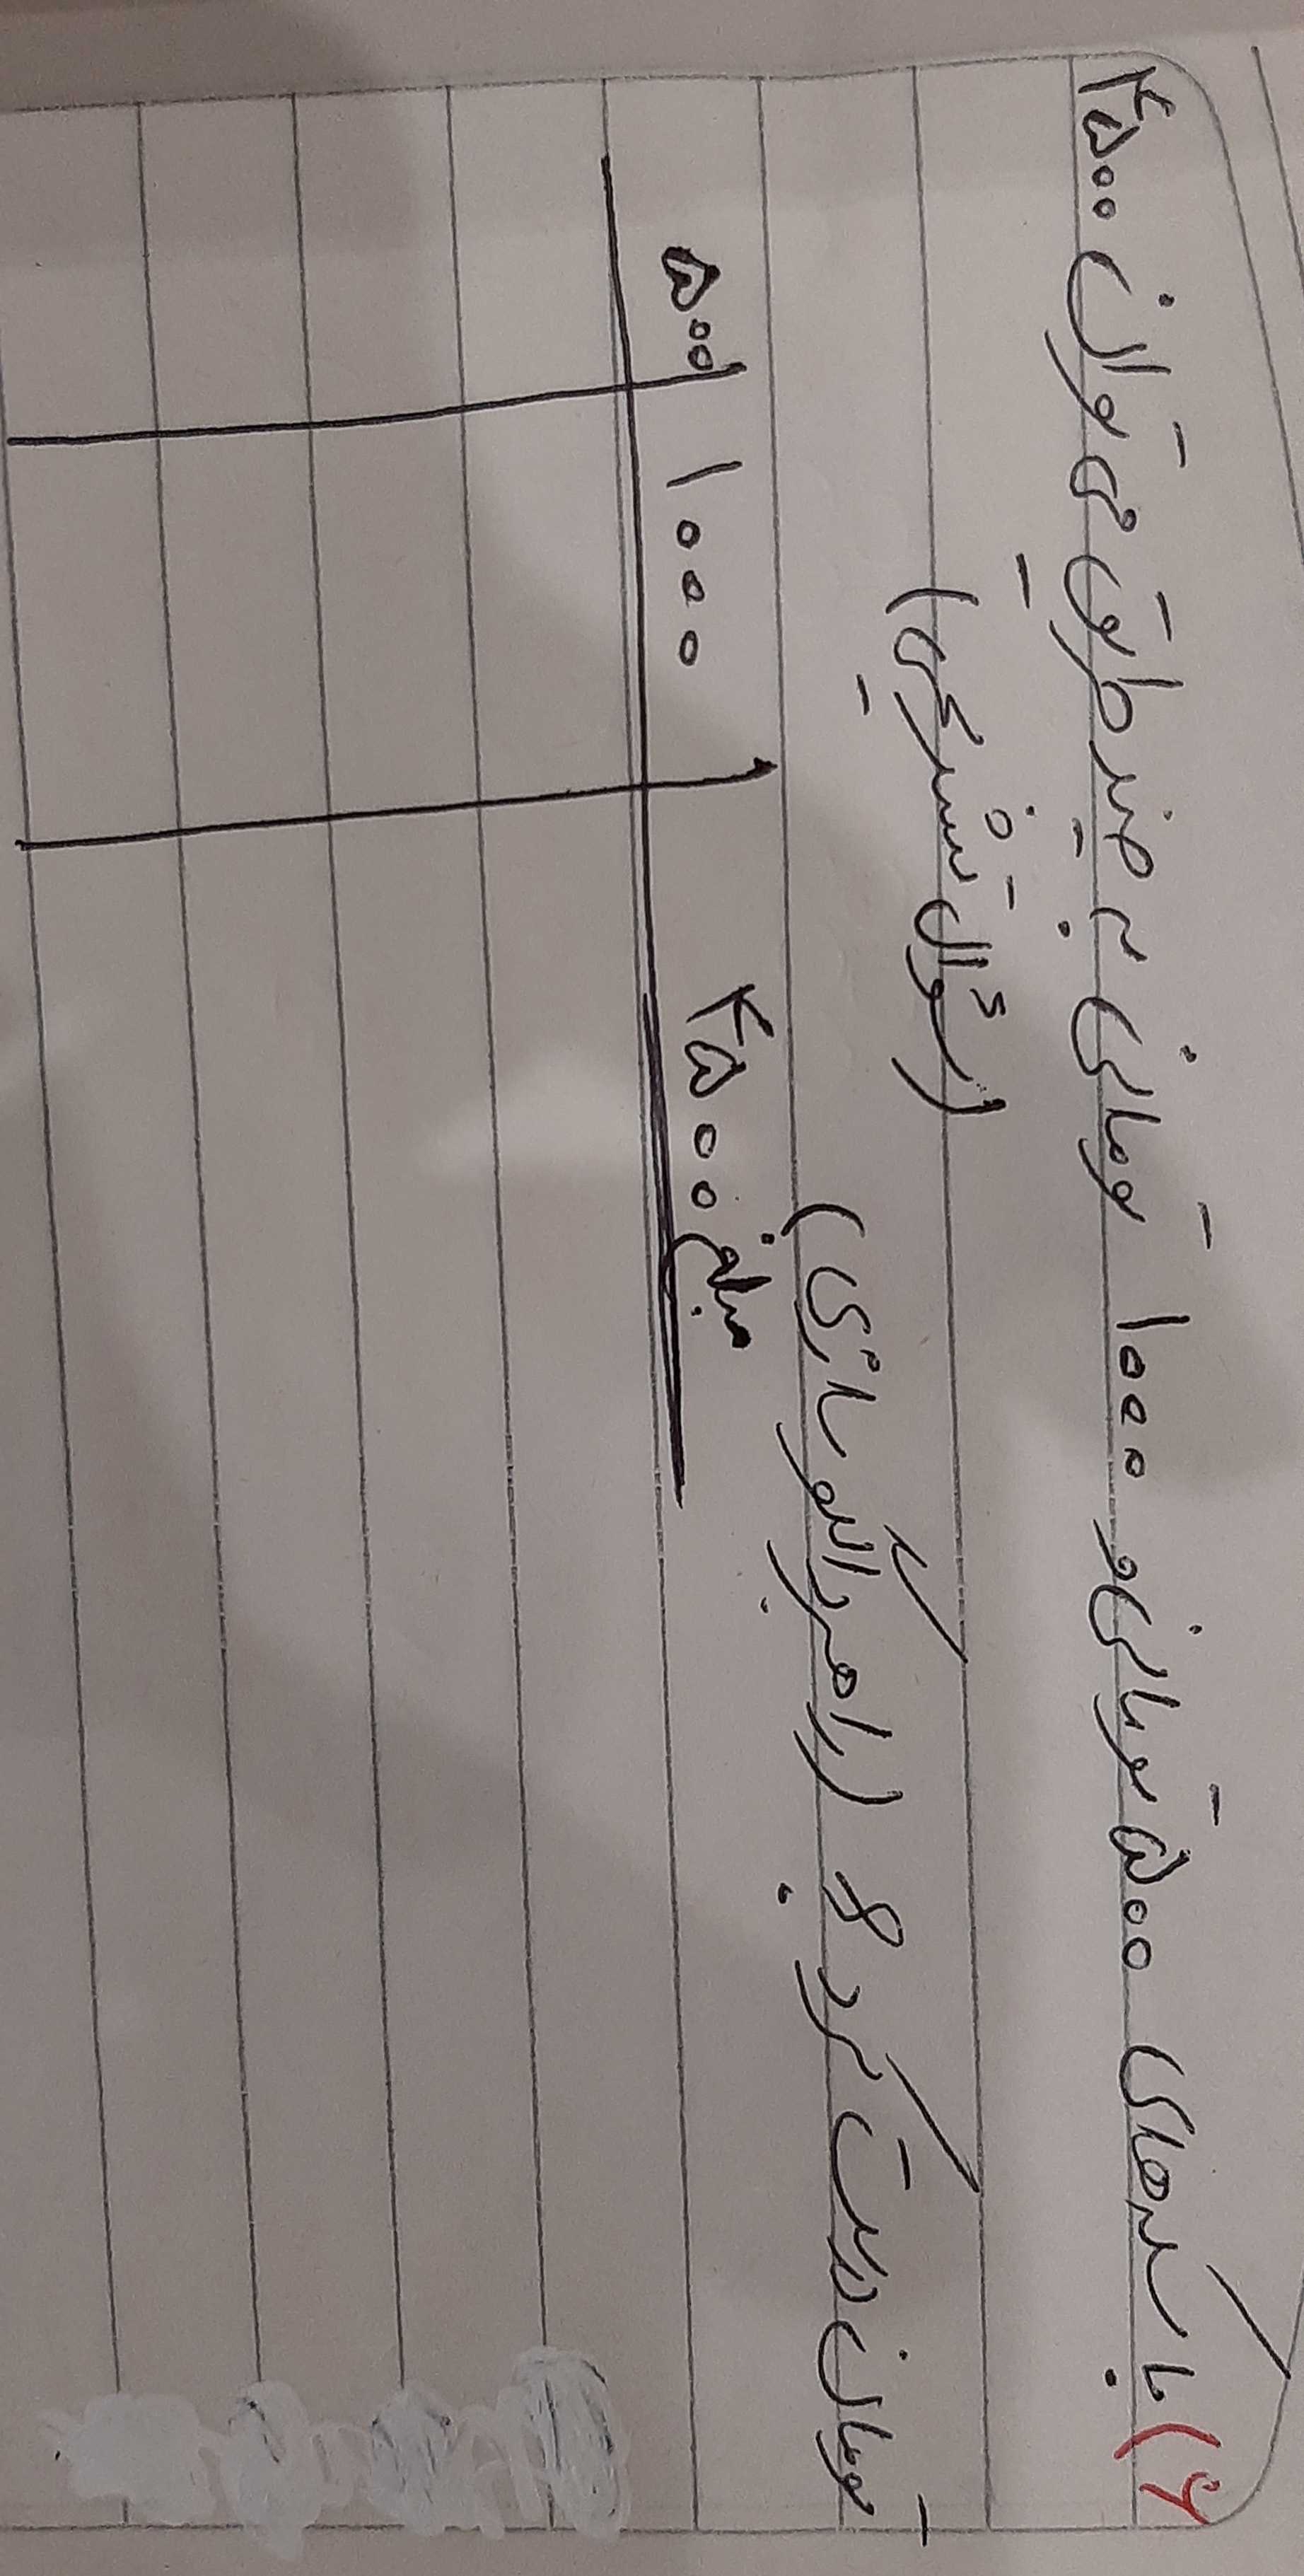 ۶) با سکه‌های ۵۰۰ تومانی و ۱۰۰۰ تومانی به چند طریق می‌توان ۴۵۰۰
(سؤال تشریحی)
تومان درست کرد؟ (راهبرد الگوسازی)
۵۰۰ ۱۰۰۰ مبلغ ۴۵۰۰